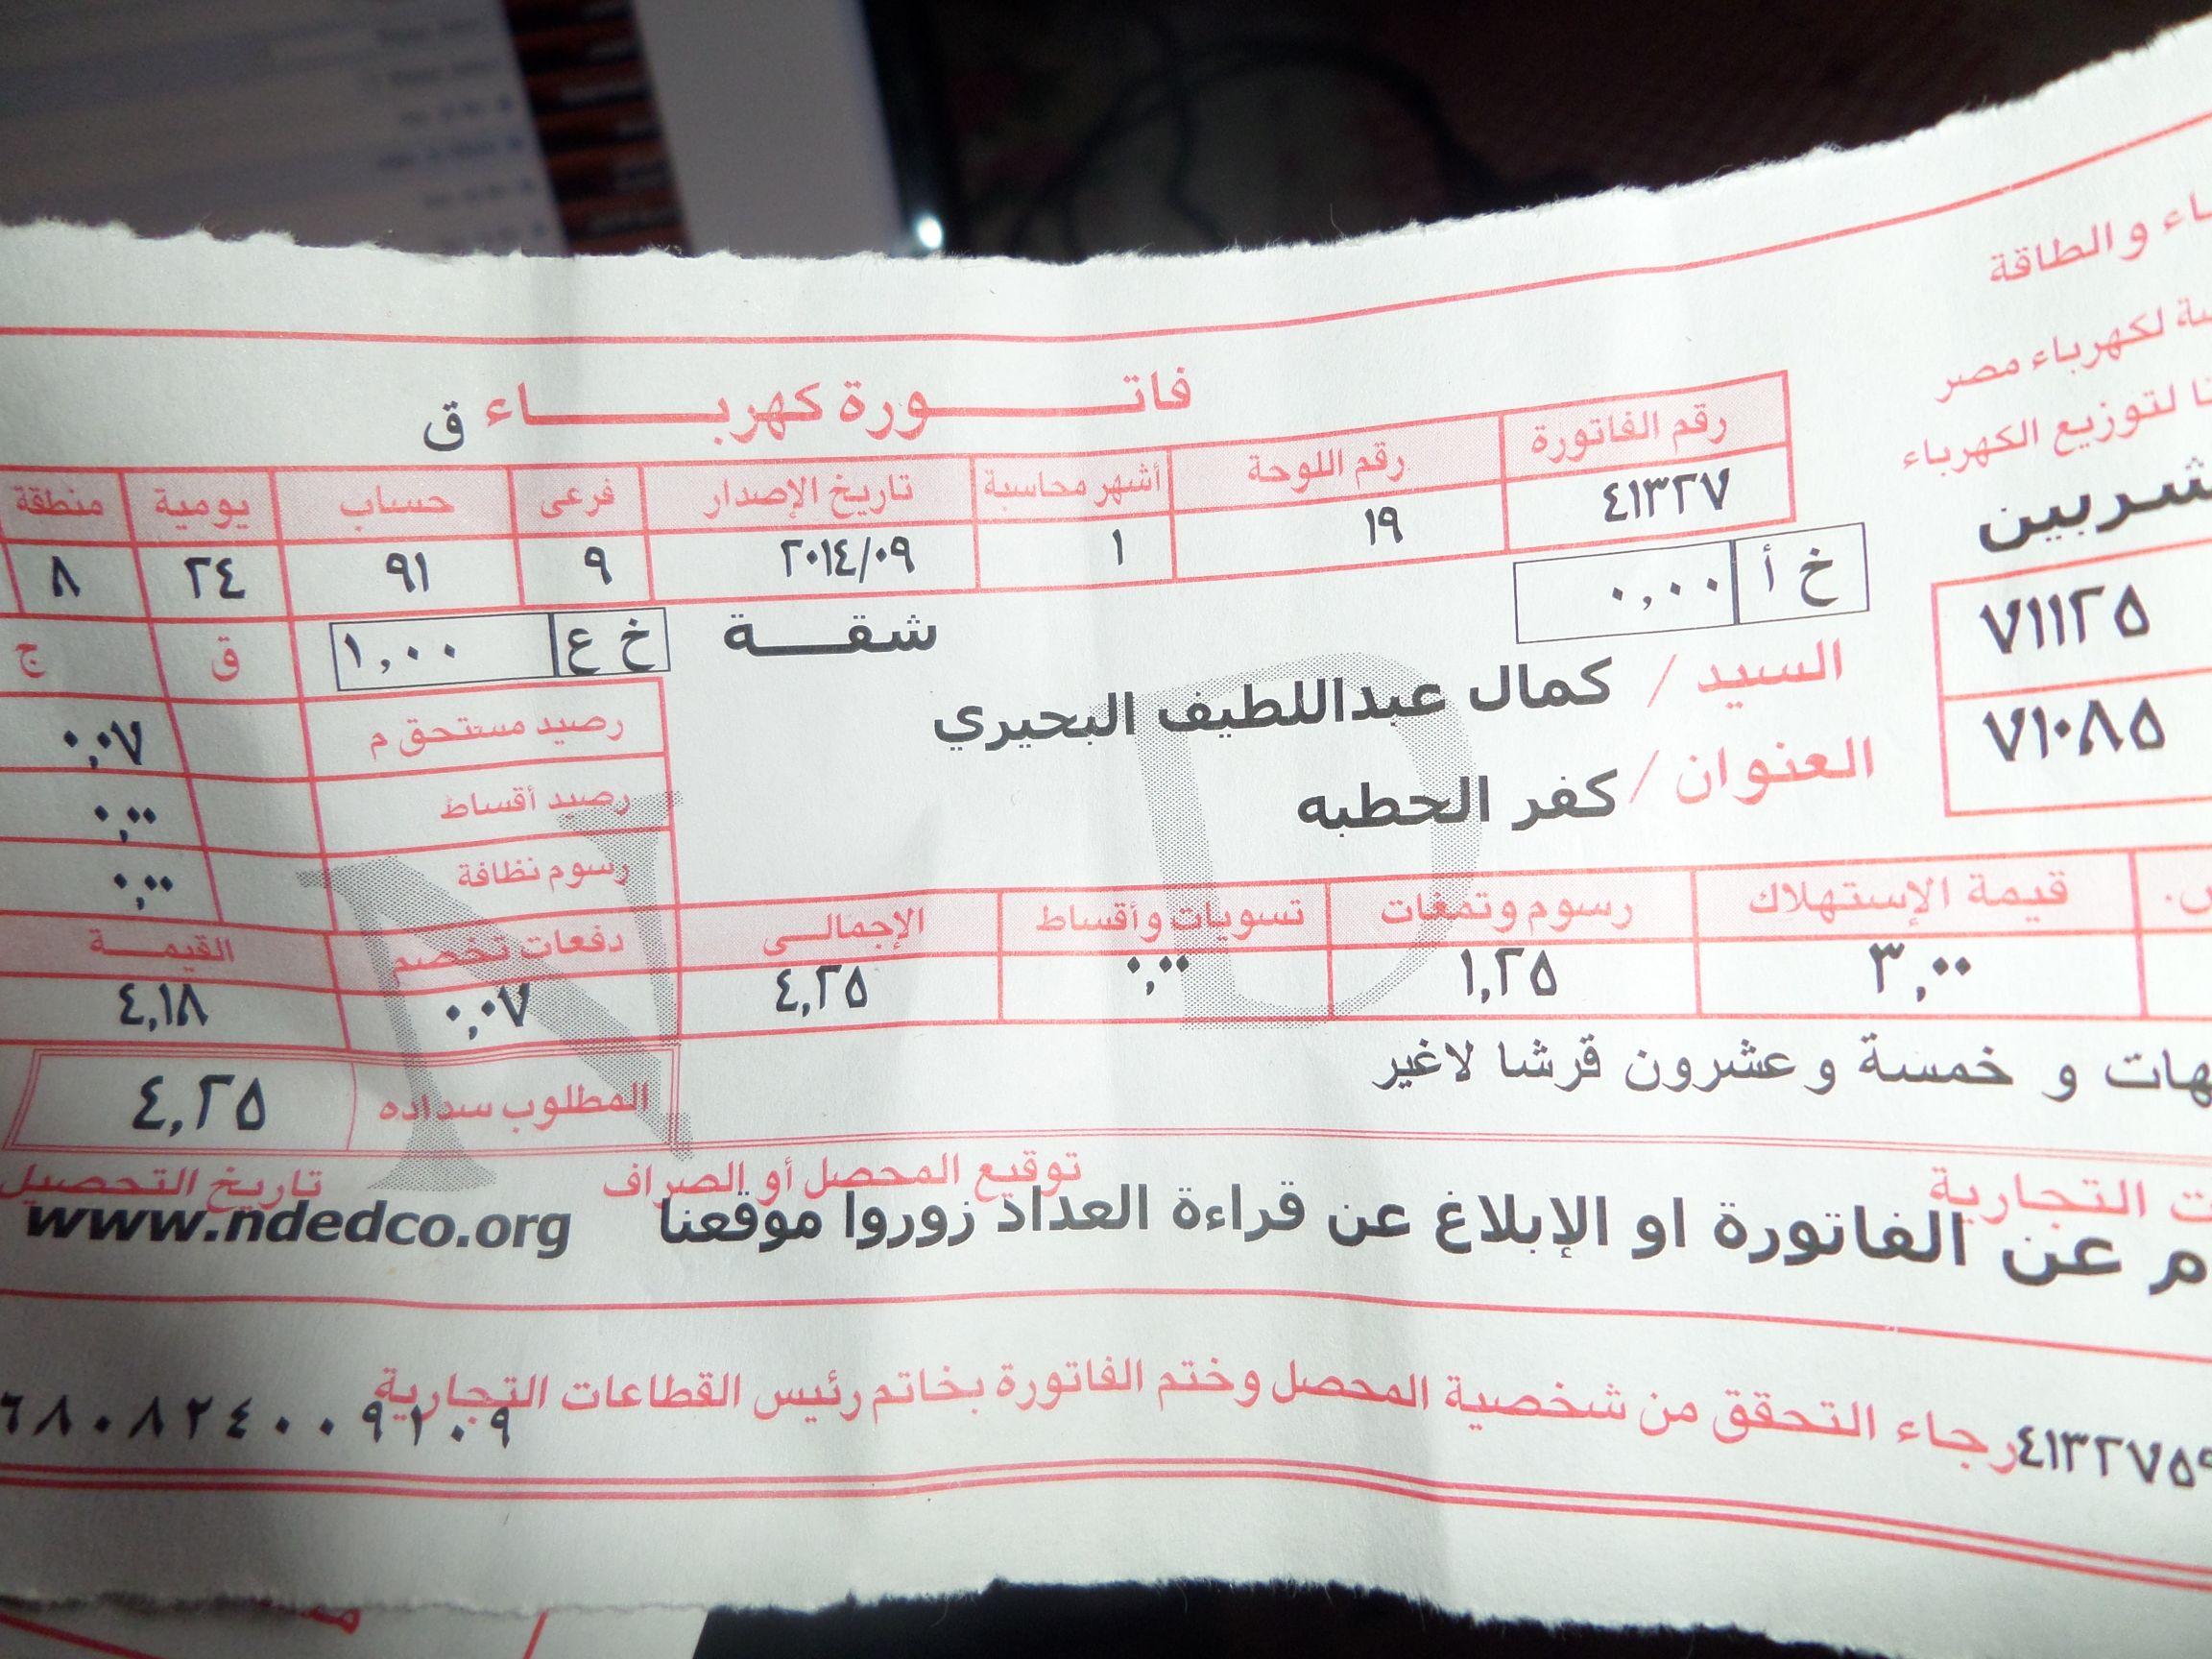 والطاقة
لكهرباء مصر
لتوزيع الكهرباء
شربين
فاتـــورة كهربـــاء ق
رقم الفاتورة رقم اللوحة أشهر محاسبة تاريخ الإصدار فرعى حساب يومية منطقة
٤١٣٢٧ ١٩ ١ ٢٠١٤/٠٩ ٩ ٩١ ٢٤ ٨
خ أ ٠,٠٠
شقـــة
خ ع ١,٠٠ ق ج
٧١١٢٥
٧١٠٨٥
السيد / كمال عبداللطيف البحيري
العنوان / كفر الحطبه
رصيد مستحق م ٠,٠٧
رصيد أقساط ٠,٠٠
رسوم نظافة ٠,٠٠
قيمة الإستهلاك رسوم وتمغات تسويات وأقساط الإجمالـــى دفعات تخصم القيمـــة
٣,٠٠ ١,٢٥ ٠,٠٠ ٤,٢٥ ٠,٠٧ ٤,١٨
و خمسة و عشرون قرشا لاغير
المطلوب سداده ٤,٢٥
التجارية توقيع المحصل أو الصراف تاريخ التحصيل
عن الفاتورة او الإبلاغ عن قراءة العداد زوروا موقعنا www.ndedco.org
رجاء التحقق من شخصية المحصل وختم الفاتورة بخاتم رئيس القطاعات التجارية